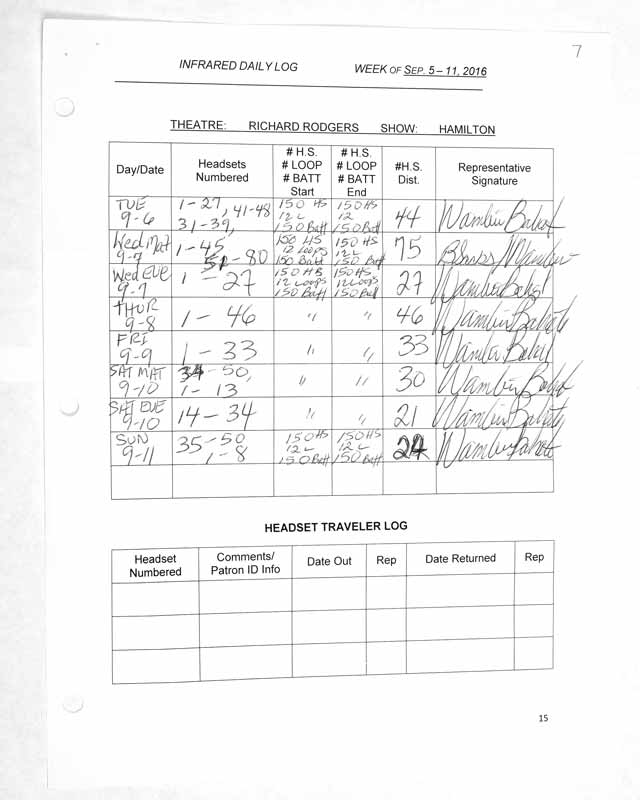 7
INFRARED DAILY LOG WEEK OF SEP. 5 – 11, 2016
THEATRE: RICHARD RODGERS SHOW: HAMILTON
Day/Date Headsets Numbered # H.S. # LOOP # BATT Start # H.S. # LOOP # BATT End #H.S. Dist. Representative Signature
TUE 9-6 1-27, 41-48 31-39, 150 HS 12 L 150 Batt 150 HS 12 150 Batt 44
Wed Mat 9-7 1-45 51-80 150 HS 12 Loops 150 Batt 150 HS 12 L 150 Batt 75
Wed EVE 9-7 1-27 150 HB 12 Loops 150 Batt 150 HS 12 Loops 150 Batt 27
THUR 9-8 1-46 " " 46
FRI 9-9 1-33 " " 33
SAT MAT 9-10 34-50, 1-13 " " 30
SAT EVE 9-10 14-34 " " 21
SUN 9-11 35-50 1-8 150 HS 12 L 150 Batt 150 HS 12 L 150 Batt 24
HEADSET TRAVELER LOG
Headset Numbered Comments/ Patron ID Info Date Out Rep Date Returned Rep
15